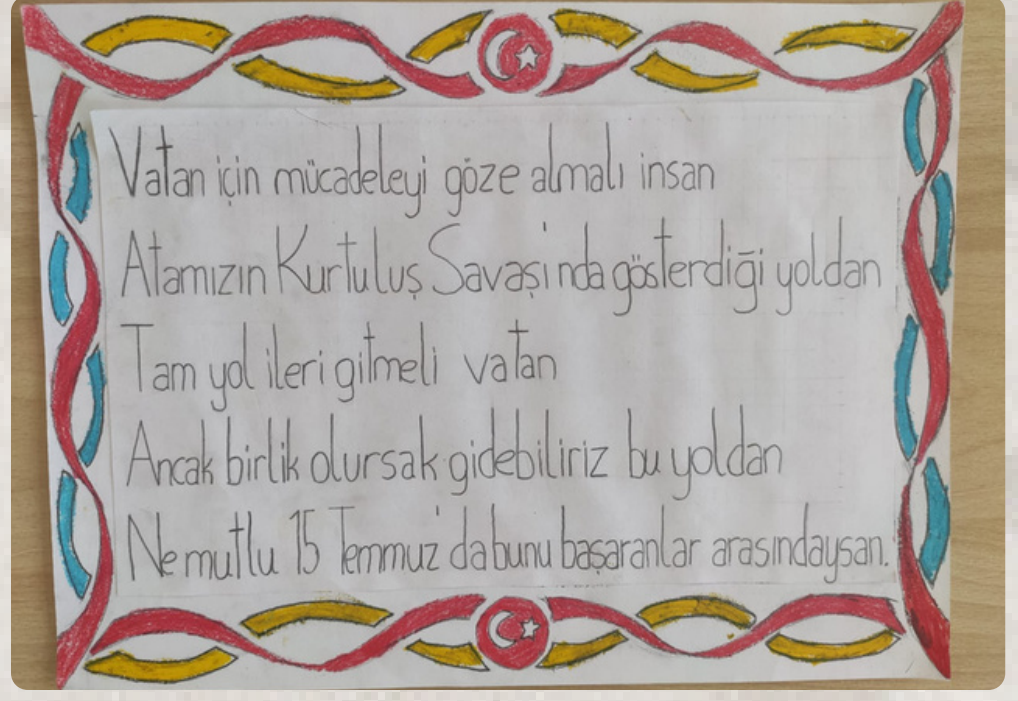 Vatan için mücadeleyi göze almalı insan
Atamızın Kurtuluş Savaşı'nda gösterdiği yoldan
Tam yol ileri gitmeli vatan
Ancak birlik olursak gidebiliriz bu yoldan
Ne mutlu 15 Temmuz'da bunu başaranlar arasındaysan.